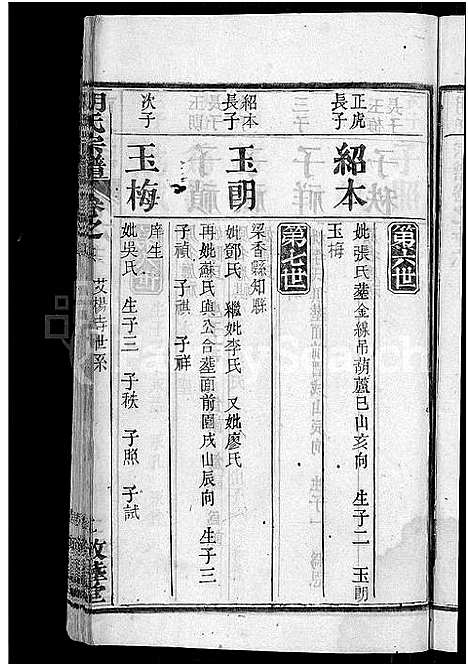 第六世
正虎
長子
紹本
妣張氏塟金線吊葫蘆巳山亥向 生子二 玉明
玉梅
第七世
紹本
長子
玉明
梁香縣知縣
妣鄧氏 繼妣李氏 又妣廖氏
再妣蘇氏與公合塟面前園戌山辰向 生子三
子禎 子祺 子祥
次子
玉梅
庠生
妣吳氏 生子三 子秩 子照 子試
胡氏宗譜
卷之
艾楊寺世系
敦睦堂